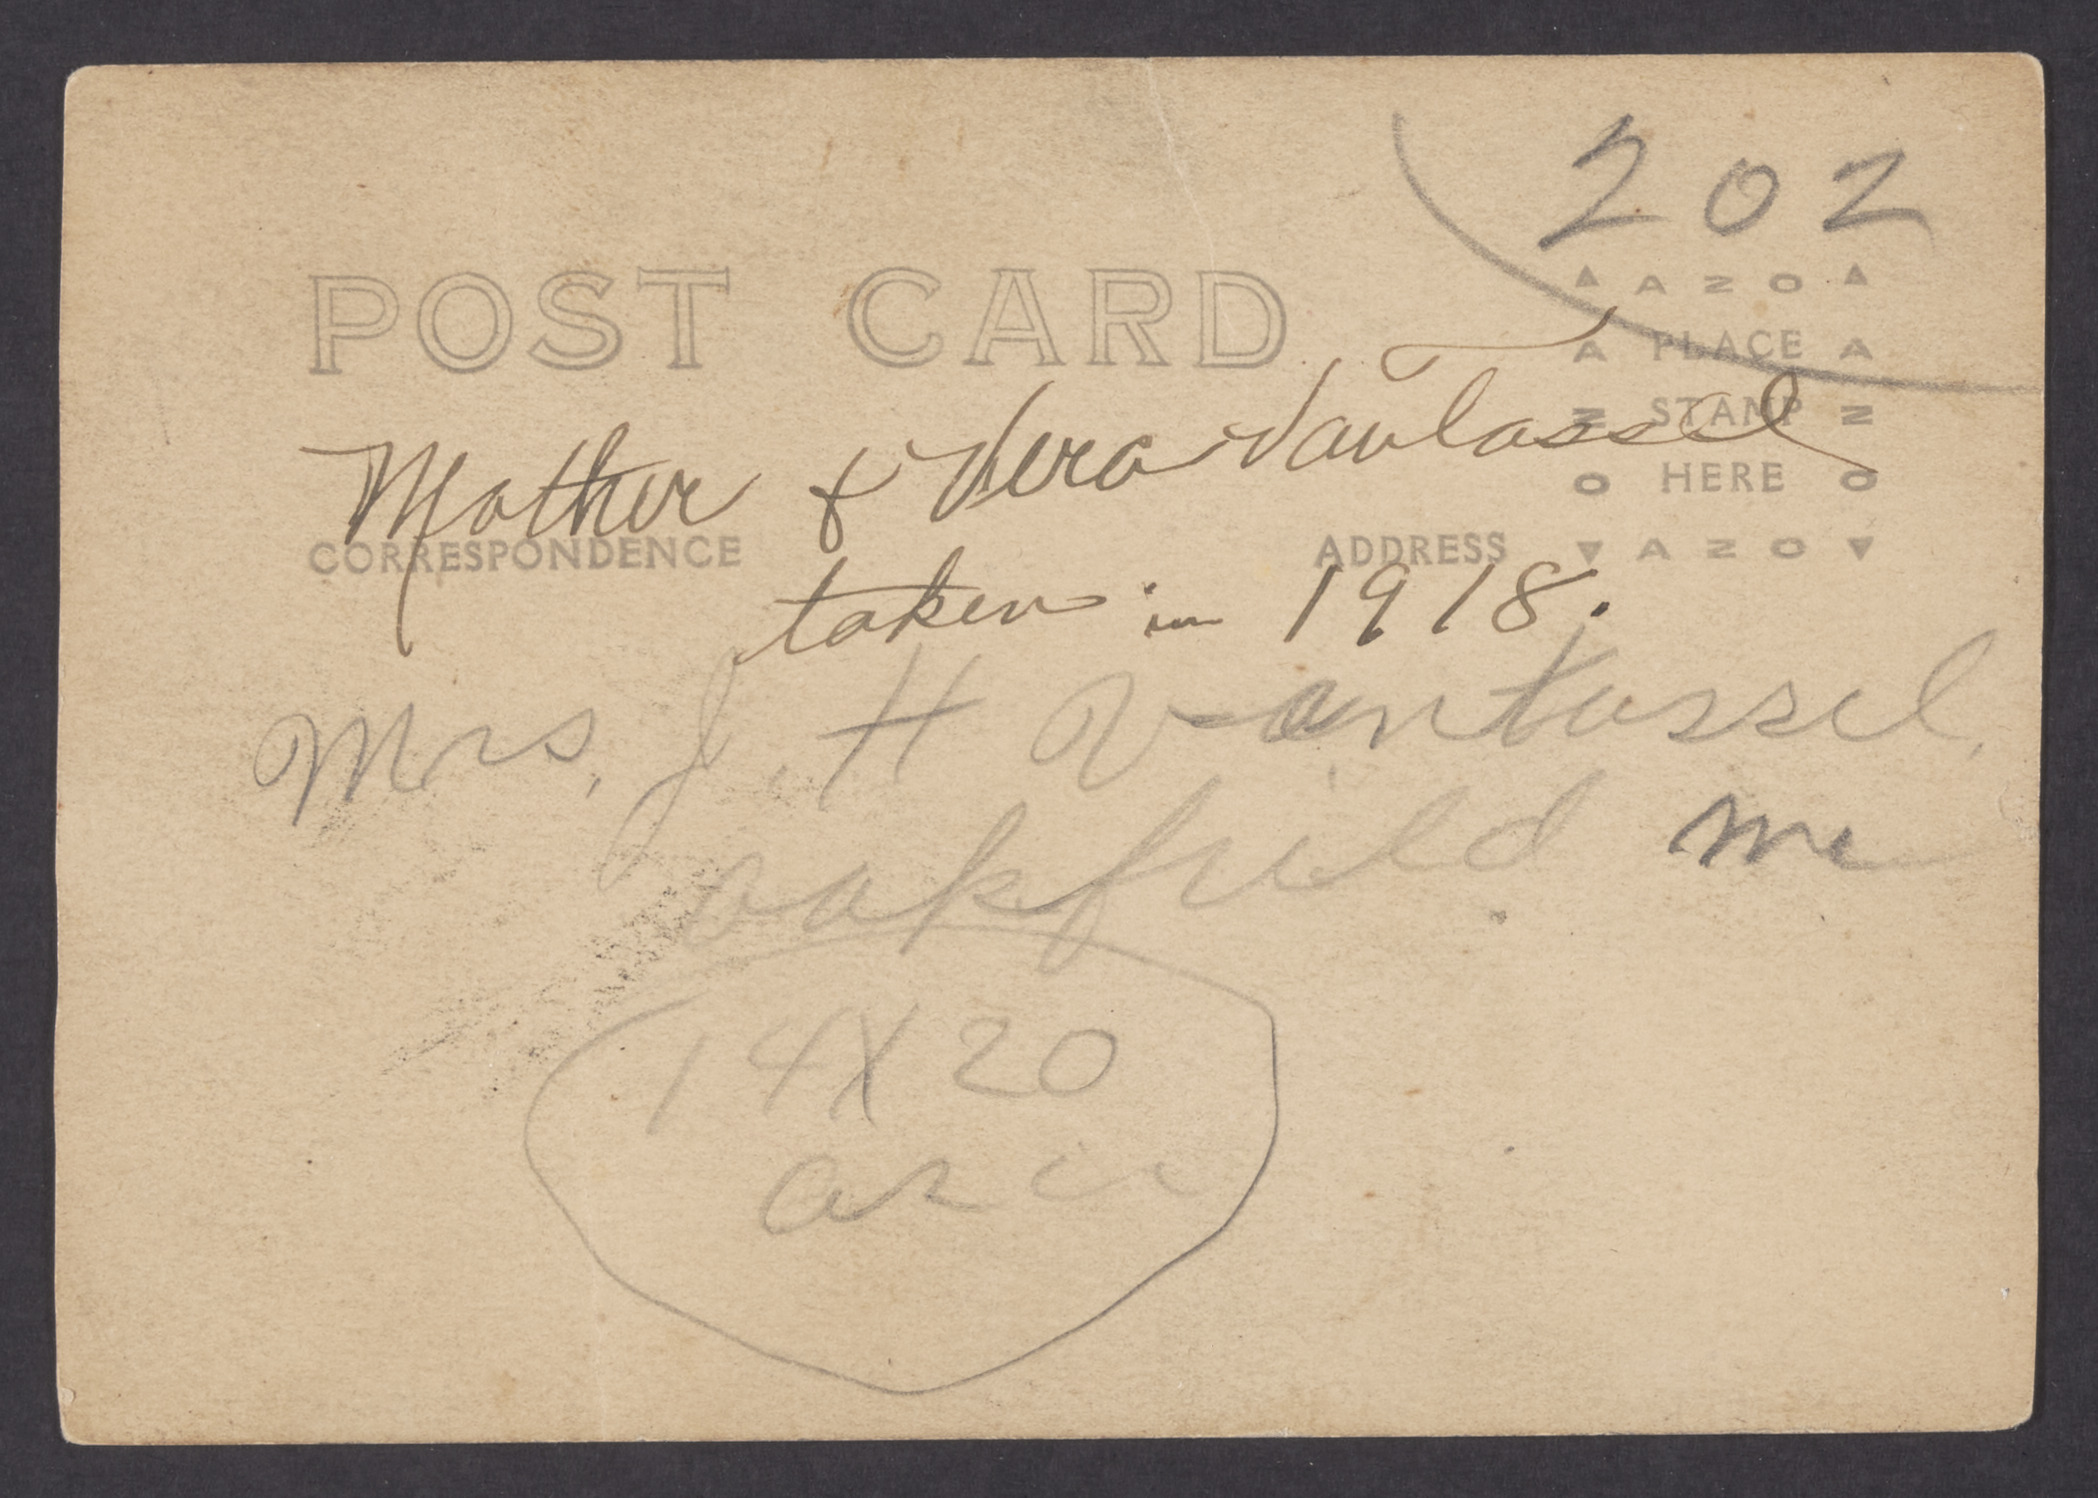 202
POST CARD
AZO
PLACE
STAMP
HERE
AZO
AZO
AZO
Mother & Vera VanTassel
CORRESPONDENCE
ADDRESS
taken in 1918.
Mrs. J. H Vantassel,
oakfield me
14X20